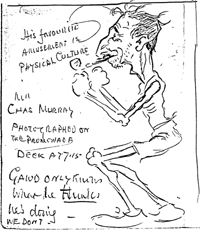 HIS FAVOURITE
AMUSEMENT IS
PHYSICAL CULTURE
MR
CHAS MURRAY
PHOTOGRAPHED ON
THE PROMENADE
DECK AT 7.15
GAWD ONLY KNOWS
WHAT HE THINKS
HE'S DOING
WE DONT